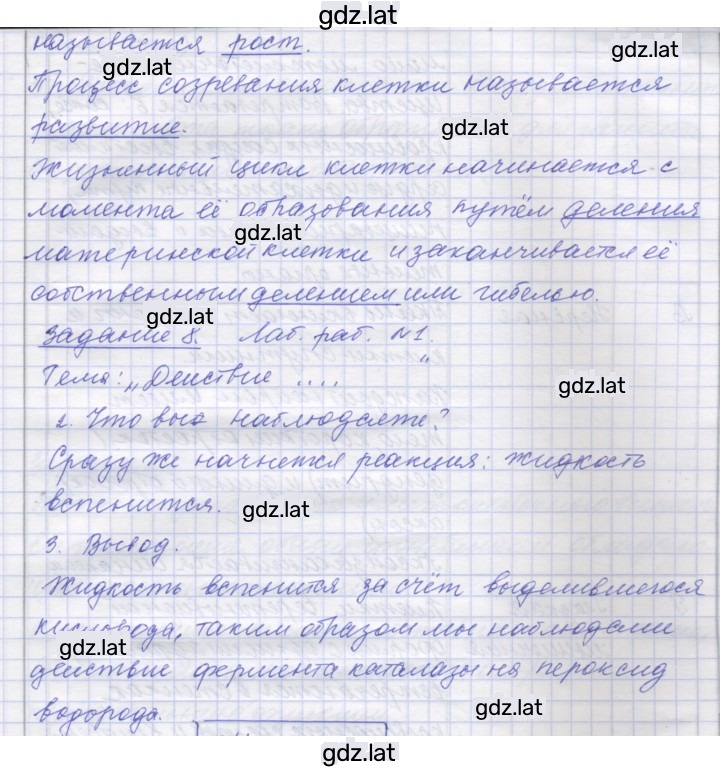 gdz.lat
называется рост.
gdz.lat
gdz.lat
Процесс созревания клетки называется
развитие.
gdz.lat
Жизненный цикл клетки начинается с
момента её образования путём деления
gdz.lat
материнской клетки и заканчивается её
собственным делением или гибелью.
gdz.lat
Задание 8. Лаб. раб. №1.
Тема: „Действие ....“
gdz.lat
2. Что вы наблюдаете?
Сразу же начнется реакция: жидкость
вспенится.
gdz.lat
3. Вывод.
Жидкость вспенится за счёт выделившегося
кислорода, таким образом мы наблюдали
gdz.lat
действие фермента каталазы на пероксид
водорода.
gdz.lat
gdz.lat